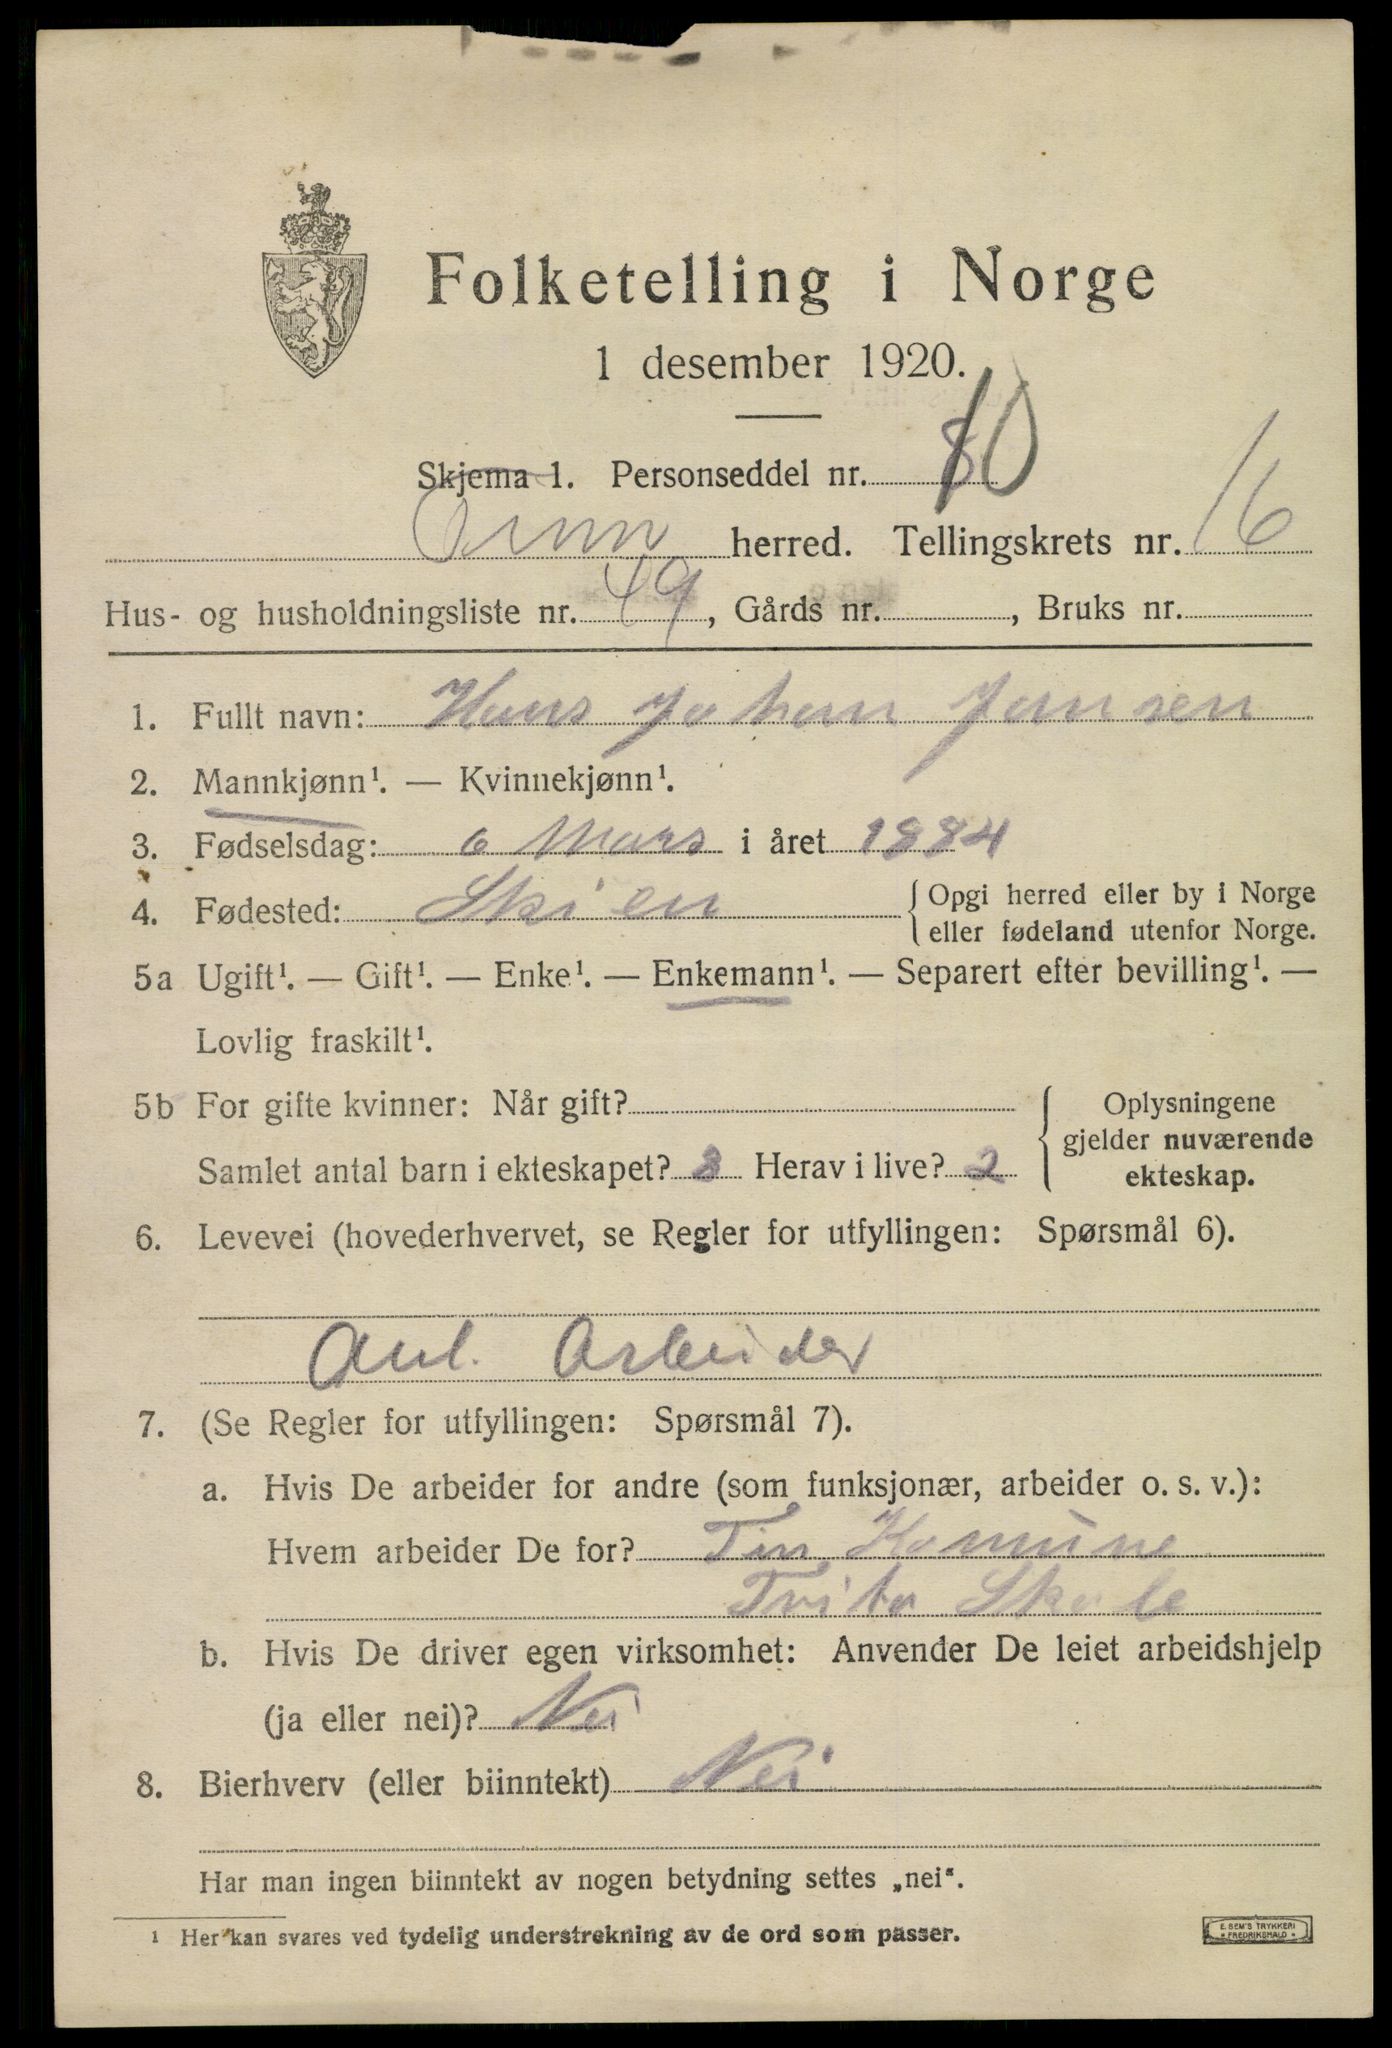 Folketelling i Norge
1 desember 1920.
Skjema 1. Personseddel nr. 10
herred. Tellingskrets nr. 16
Hus- og husholdningsliste nr. 49, Gårds nr. , Bruks nr.
1. Fullt navn: Hans Johan Jansen
2. Mannkjønn¹. — Kvinnekjønn¹.
3. Fødselsdag: 6 Mars i året 1884
4. Fødested: Skien { Opgi herred eller by i Norge
eller fødeland utenfor Norge.
5a Ugift¹. — Gift¹. — Enke¹. — Enkemann¹. — Separert efter bevilling¹. —
Lovlig fraskilt¹.
5b For gifte kvinner: Når gift?
Samlet antal barn i ekteskapet? 3 Herav i live? 2
Oplysningene
gjelder nuværende
ekteskap.
6. Levevei (hovederhvervet, se Regler for utfyllingen: Spørsmål 6).
Anl. Arbeider
7. (Se Regler for utfyllingen: Spørsmål 7).
a. Hvis De arbeider for andre (som funksjonær, arbeider o. s. v.):
Hvem arbeider De for? Tin Komune
Tveito Skole
b. Hvis De driver egen virksomhet: Anvender De leiet arbeidshjelp
(ja eller nei)? Nei
8. Bierhverv (eller biinntekt) Nei
Har man ingen biinntekt av nogen betydning settes „nei“.
¹ Her kan svares ved tydelig understrekning av de ord som passer.
E. SEM'S TRYKKERI
FREDRIKSHALD